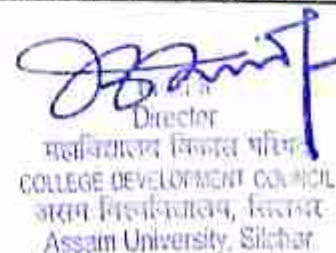 Director
महाविद्यालय विकास परिषद
COLLEGE DEVELOPMENT COUNCIL
असम विश्वविद्यालय, सिलचर
Assam University, Silchar